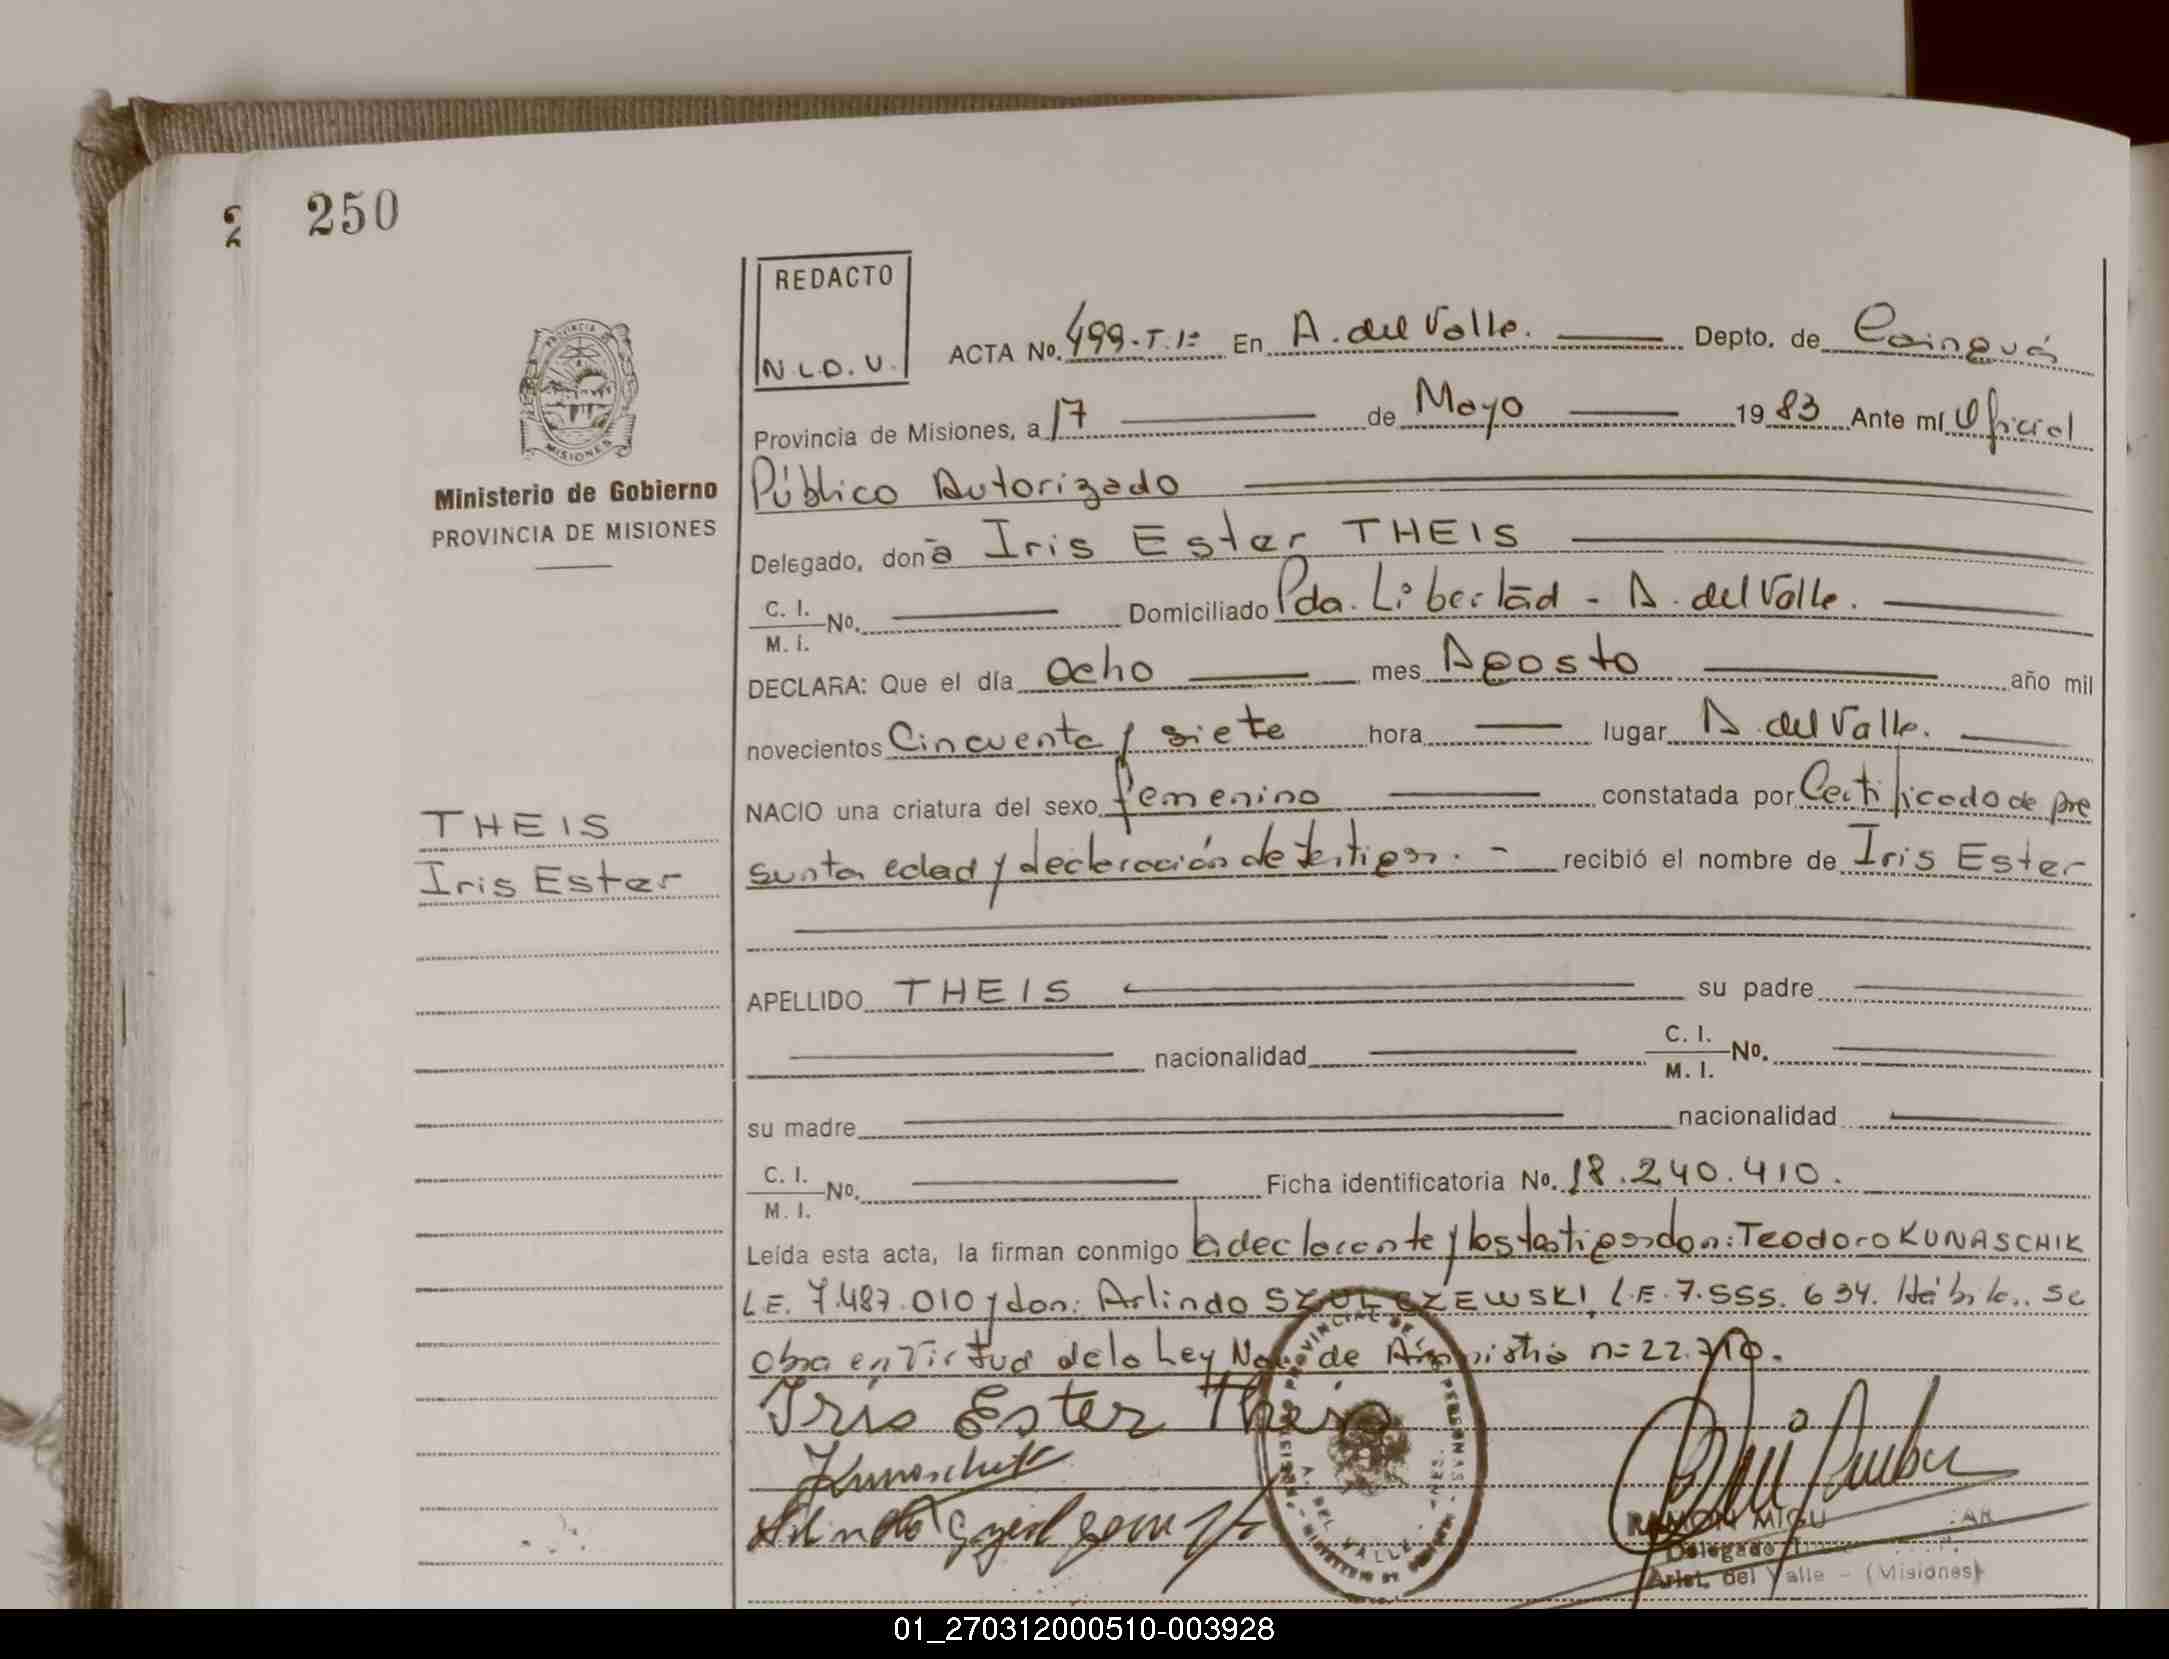 2 250
REDACTO
N.L.D.V.
ACTA No. 499-T.1º En A. del Valle. Depto. de Cainguás
Provincia de Misiones, a 17 de Mayo 1983 Ante mí Oficial
Público Autorizado
Delegado, doña Iris Ester THEIS
C. I.
M. I. No. Domiciliado Pda. Libertad - A. del Valle.
DECLARA: Que el día Ocho mes Agosto año mil
novecientos Cincuenta y siete hora lugar A. del Valle.
NACIO una criatura del sexo femenino constatada por Certificado de pre
sunta edad y declaración de testigos. - recibió el nombre de Iris Ester
APELLIDO THEIS su padre
nacionalidad C. I.
M. I. No.
su madre nacionalidad
C. I.
M. I. No. Ficha identificatoria No. 18.240.410.
Leída esta acta, la firman conmigo la declarante y los testigos don: Teodoro KUNASCHIK
L.E. 7.487.010 y don: Arlindo SZULCZEWSKI, L.E. 7.555.634. Hábiles. Se
Obra en Virtud de la Ley Nac. de Amnistía nº 22.710.
Iris Ester Theis
Kunaschik
Arlindo
RAMON MIGU AR
Delegado
Arist. del Valle - (Misiones)
PROVINCIAL DE LAS PERSONAS
A. DEL VALLE
PROVINCIA
MISIONES
Ministerio de Gobierno
PROVINCIA DE MISIONES
THEIS
Iris Ester
01_270312000510-003928